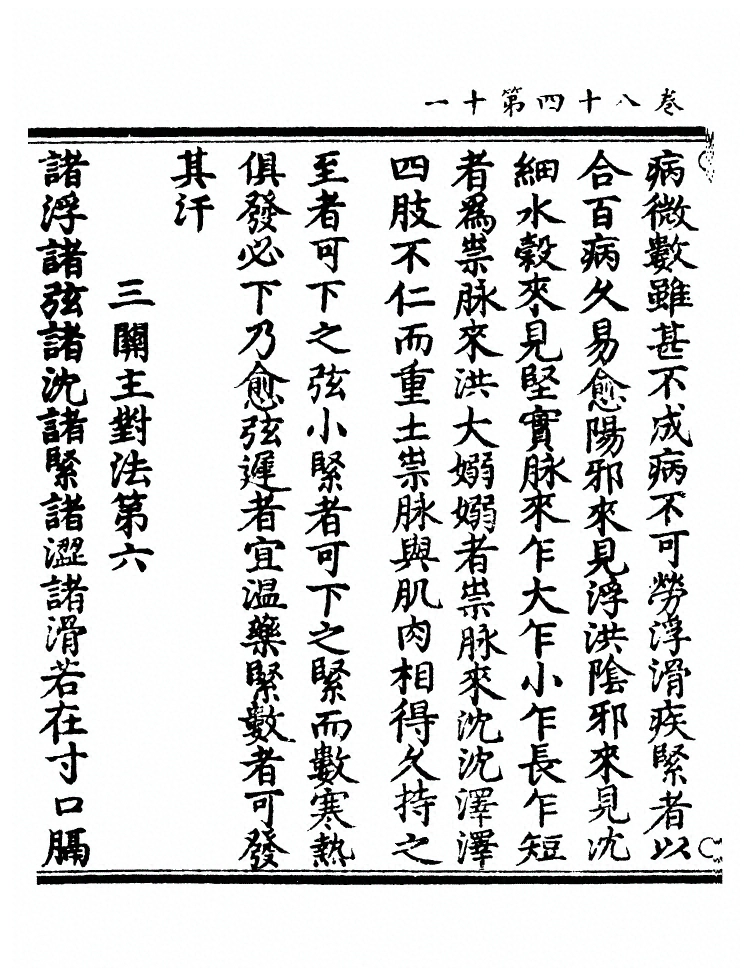 卷八十四第十一
病微數雖甚不成病不可勞浮滑疾緊者以
合百病久易愈陽邪來見浮洪陰邪來見沈
細水穀來見堅實脉來乍大乍小乍長乍短
者爲祟脉來洪大嫋嫋者祟脉來沈沈澤澤
四肢不仁而重土祟脉與肌肉相得久持之
至者可下之弦小緊者可下之緊而數寒熱
俱發必下乃愈弦遲者宜温藥緊數者可發
其汗
三關主對法第六
諸浮諸弦諸沈諸緊諸澀諸滑若在寸口膈